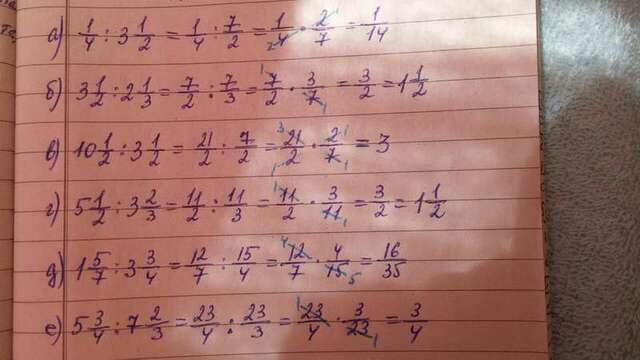 а) 1/4 : 3 1/2 = 1/4 : 7/2 = 1/4 · 2/7 = 1/14
б) 3 1/2 : 2 1/3 = 7/2 : 7/3 = 7/2 · 3/7 = 3/2 = 1 1/2
в) 10 1/2 : 3 1/2 = 21/2 : 7/2 = 21/2 · 2/7 = 3
г) 5 1/2 : 3 2/3 = 11/2 : 11/3 = 11/2 · 3/11 = 3/2 = 1 1/2
д) 1 5/7 : 3 3/4 = 12/7 : 15/4 = 12/7 · 4/15 = 16/35
е) 5 3/4 : 7 2/3 = 23/4 : 23/3 = 23/4 · 3/23 = 3/4